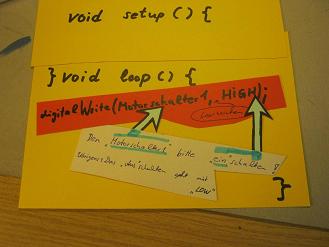 void setup() {
} void loop() {
digitalWrite(Motorschalter1, HIGH);
Den "Motorschalter1" bitte "ein"schalten!
übrigens: Das "aus"schalten geht mit "LOW"
}